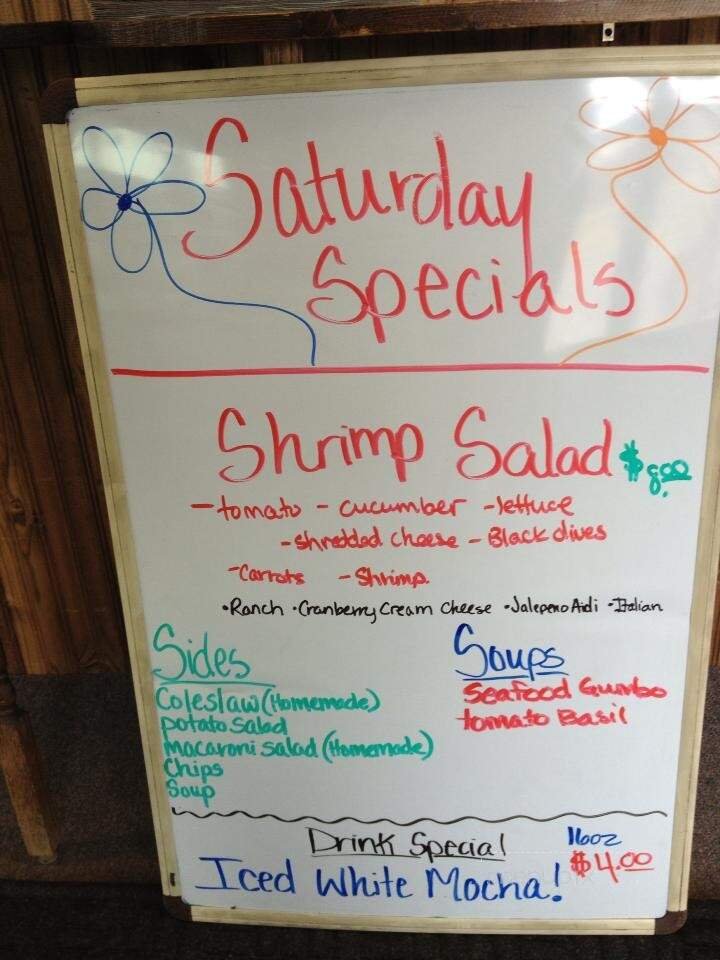 Saturday
Specials
Shrimp Salad $8.00
- tomato - cucumber - lettuce
- shredded cheese - Black olives
- Carrots - Shrimp.
• Ranch • Cranberry Cream Cheese • Jalepeno Aidi • Italian
Sides
Coleslaw (Homemade)
potato salad
Macaroni salad (Homemade)
Chips
Soup
Soups
Seafood Gumbo
tomato Basil
Drink Special
Iced White Mocha!
16oz
$4.00